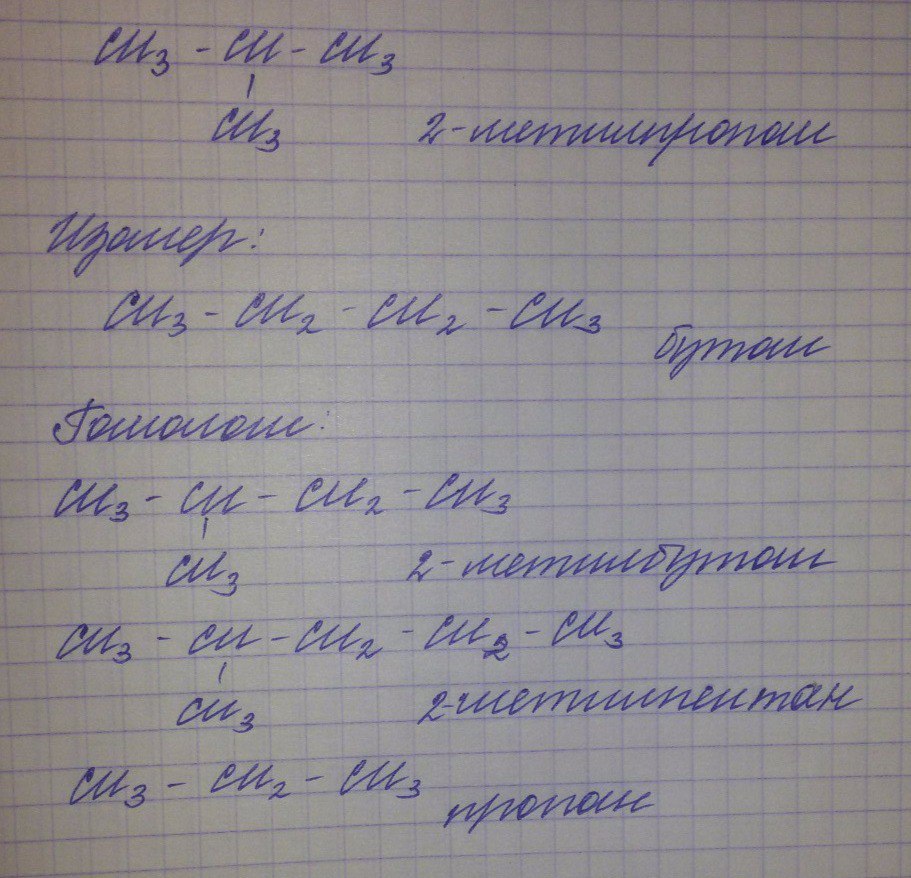 CH₃ - CH - CH₃
|
CH₃ 2-метилпропан
Изомер:
CH₃ - CH₂ - CH₂ - CH₃
бутан
Гомологи:
CH₃ - CH - CH₂ - CH₃
|
CH₃ 2-метилбутан
CH₃ - CH - CH₂ - CH₂ - CH₃
|
CH₃ 2-метилпентан
CH₃ - CH₂ - CH₃
пропан